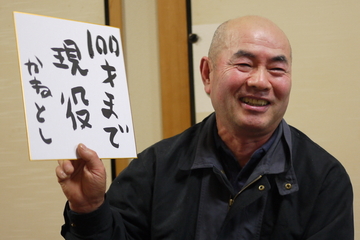 100才まで
現役
かねとし